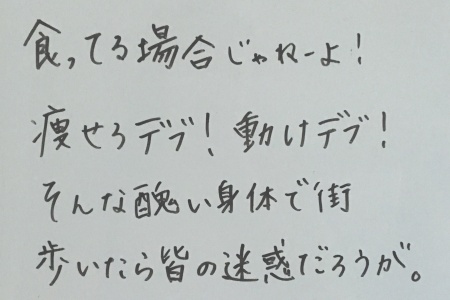 食ってる場合じゃねーよ!
痩せろデブ!動けデブ!
そんな醜い身体で街
歩いたら皆の迷惑だろうが。